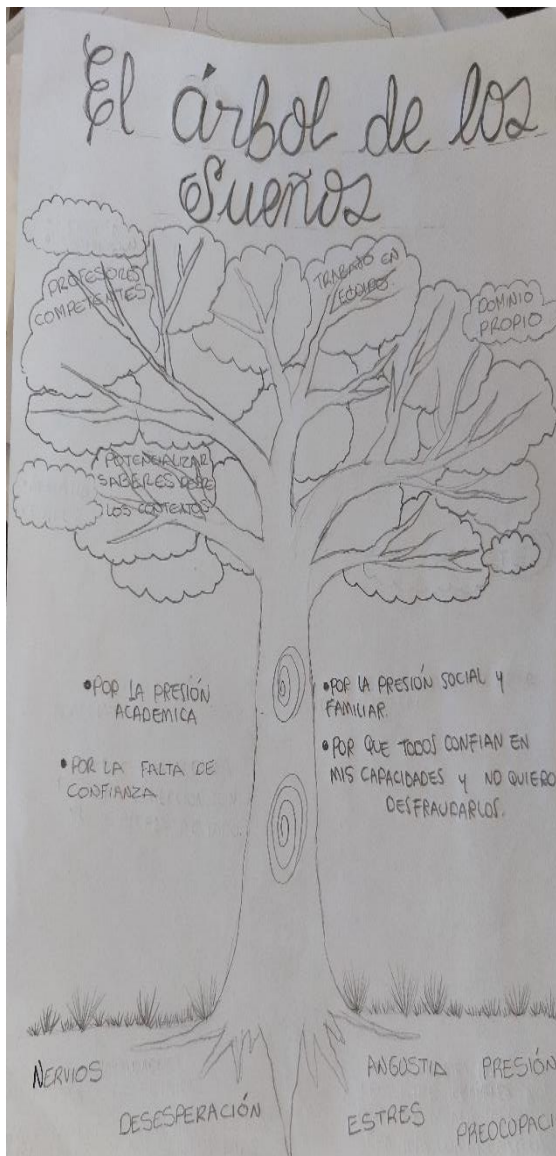 El árbol de los
Sueños
PROFESORES
COMPETENTES
TRABAJO EN
EQUIPO.
DOMINIO
PROPIO
POTENCIALIZAR
SABERES
LOS CONTENIDOS
•POR LA PRESIÓN
ACADEMICA
•POR LA FALTA DE
CONFIANZA
•POR LA PRESIÓN SOCIAL y
FAMILIAR.
•POR QUE TODOS CONFIAN EN
MIS CAPACIDADES y NO QUIERO
DESFRAUDARLOS.
NERVIOS
ANGOSTIA PRESIÓN
DESESPERACIÓN
ESTRES
PREOCUPACI